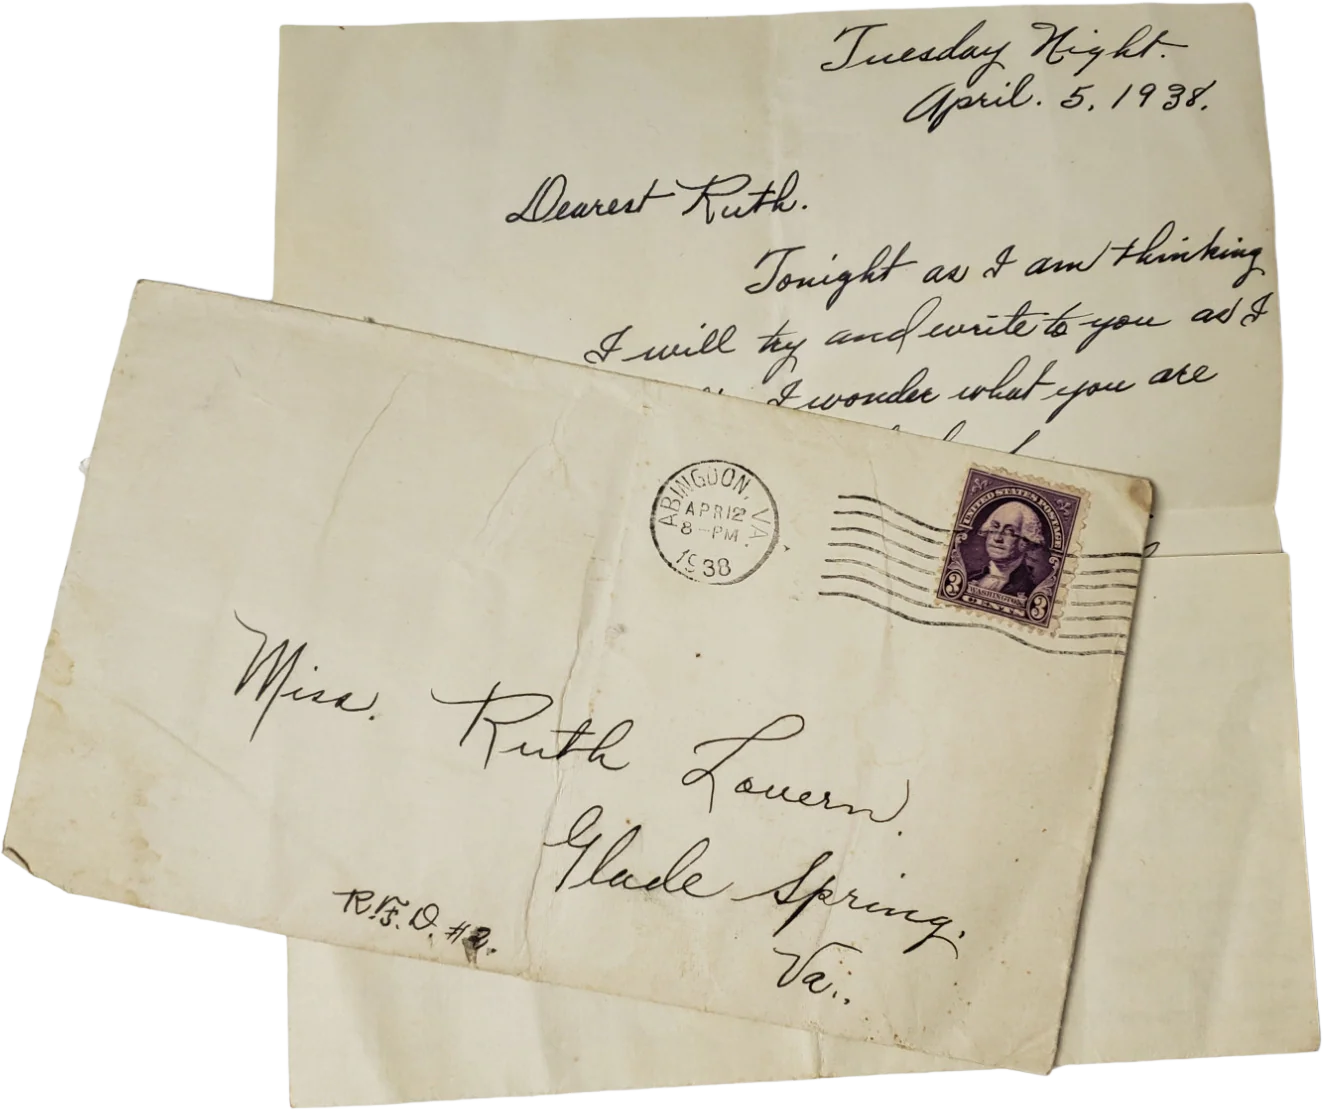 Tuesday Night.
April. 5, 1938.
Dearest Ruth.
Tonight as I am thinking
I will try and write to you as I
I wonder what you are
ABINGDON, VA.
APR 12
8-PM
1938
UNITED STATES POSTAGE
3 WASHINGTON 3
CENTS
Miss. Ruth Louern.
Glade Spring,
Va..
R.F.D. #2.